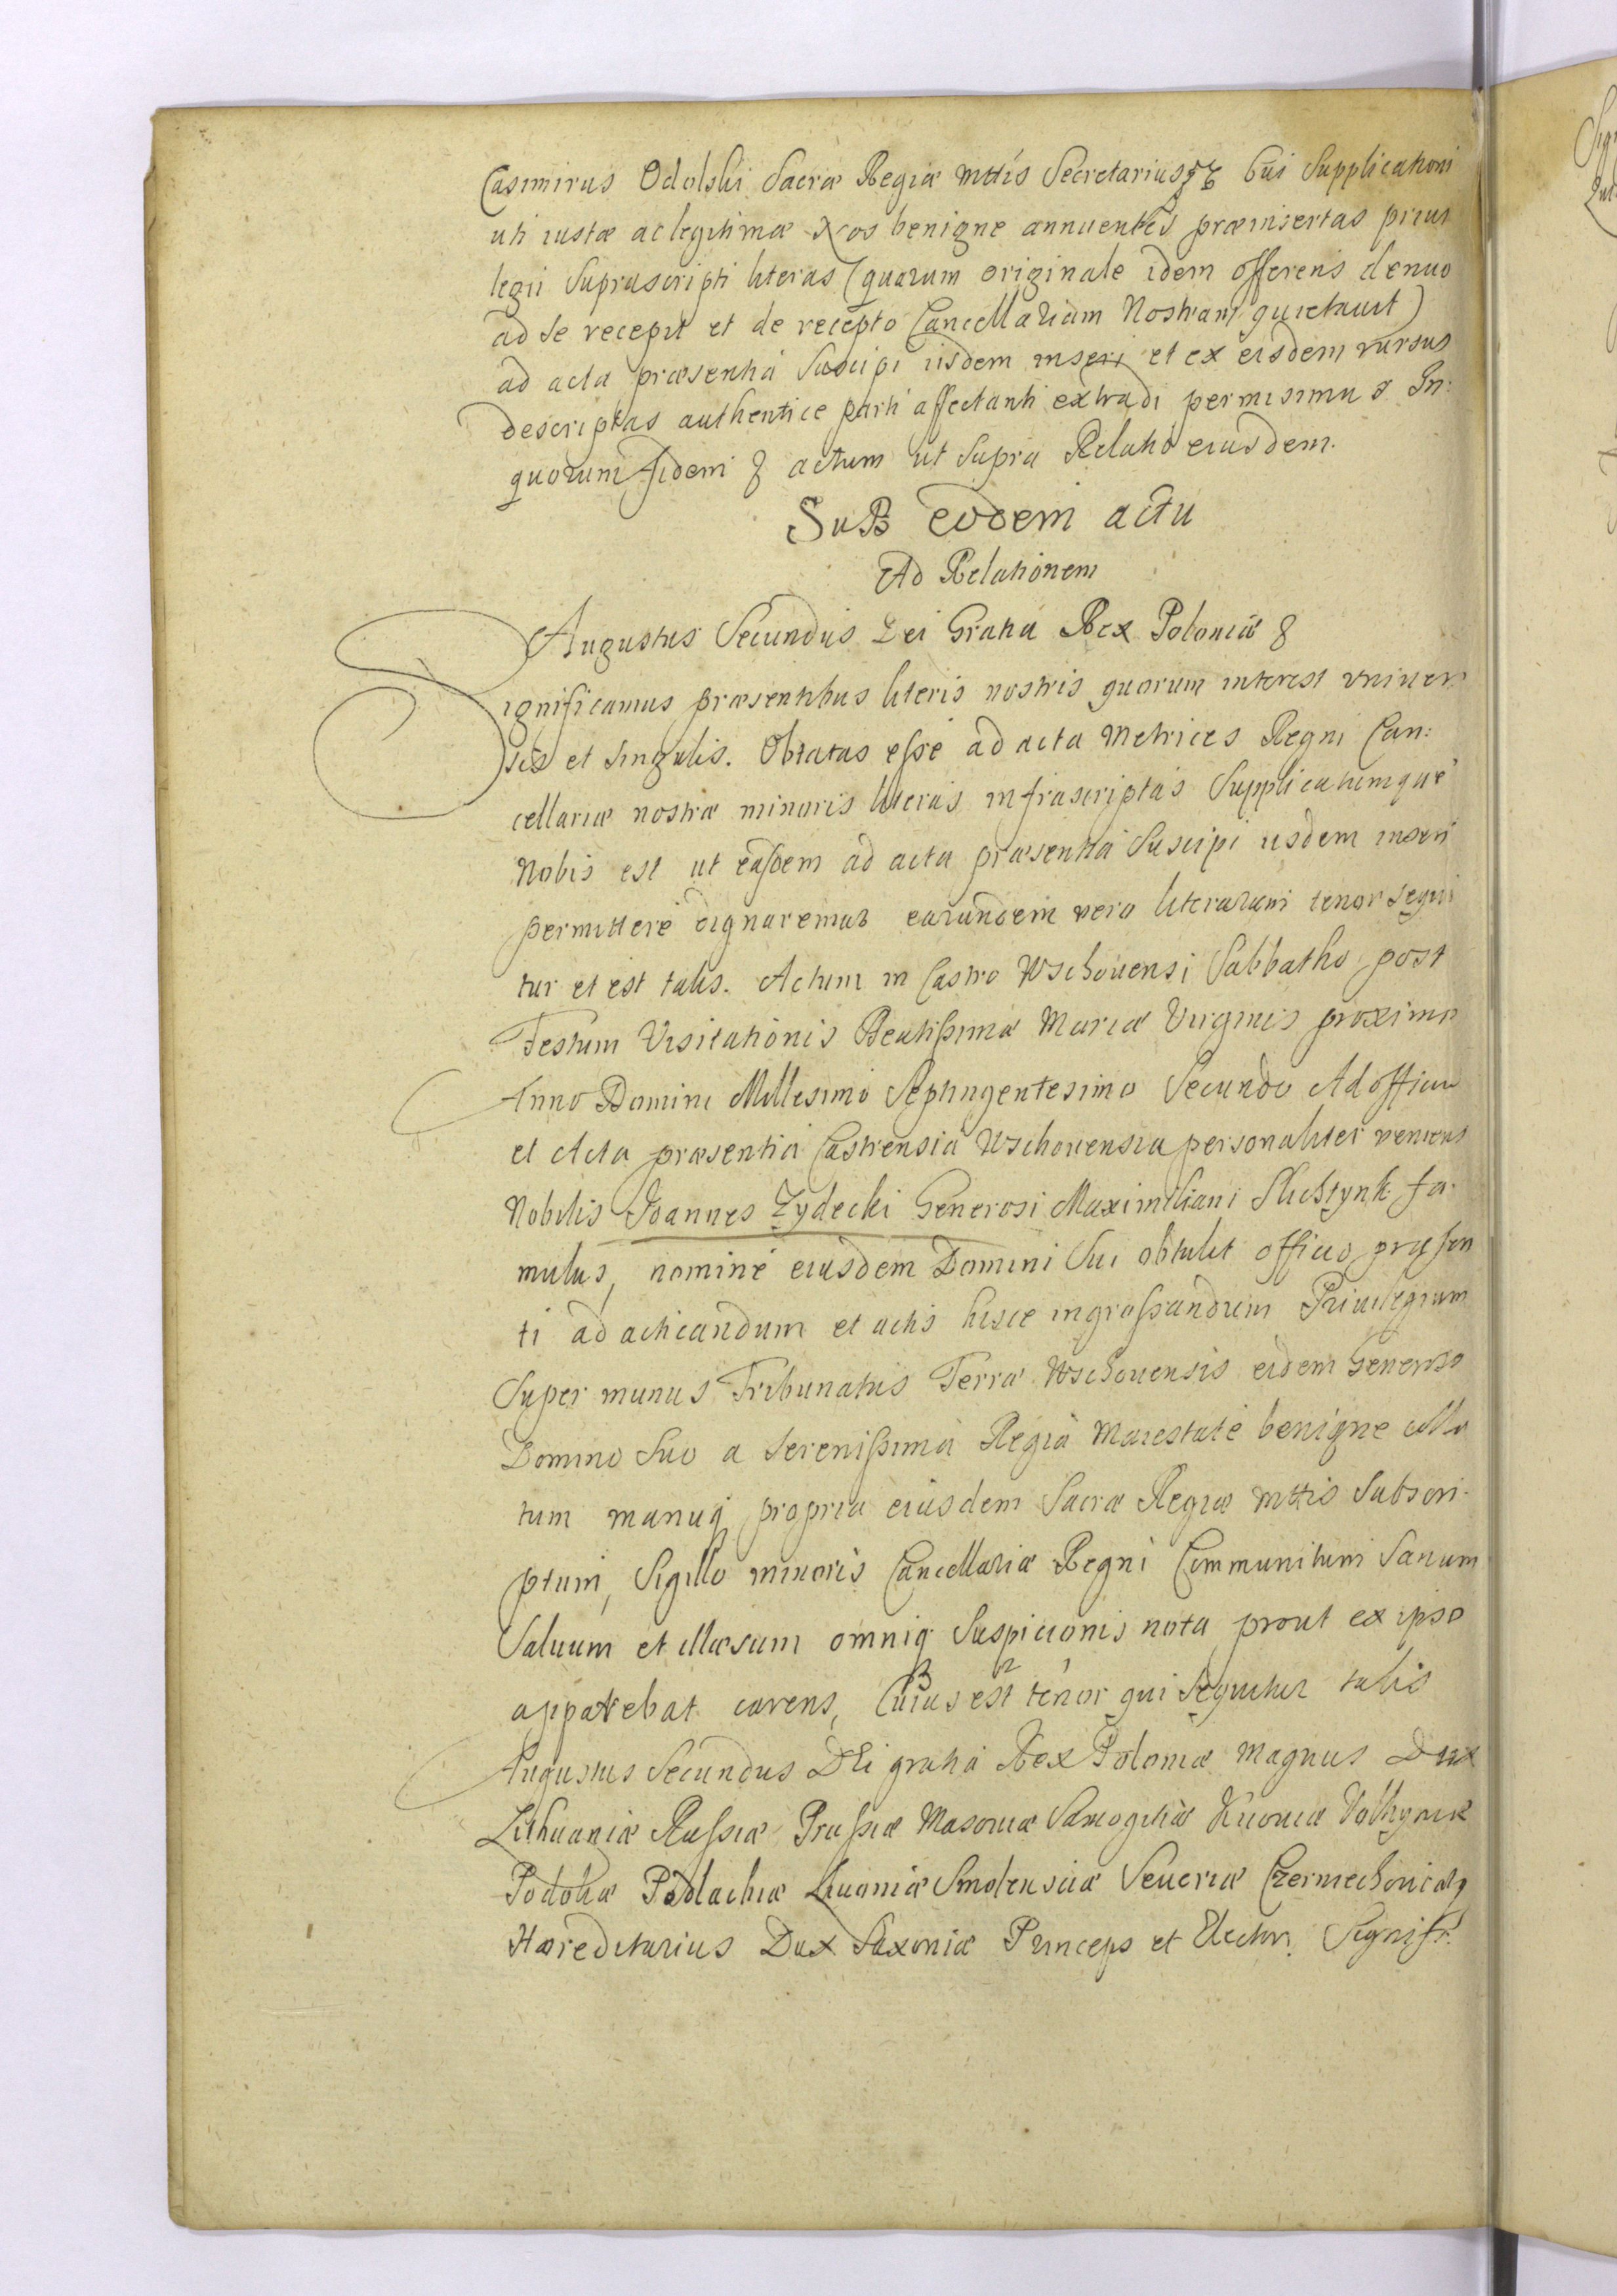 Casimirus Odolski Sacræ Regiæ Mttis Secretarius Cui Supplicationi
uti iustæ ac legitimæ Nos benigne annuentes præinsertas priui
legii suprascripti literas (quarum originale idem offerens denuo
ad se recepit et de recepto Cancellariam Nostram quietauit)
ad acta præsentia suscipi iisdem inseri et ex eisdem rursus
descriptas authentice parti affectanti extradi permisimus In:
quorum fidem & actum ut supra Relatio eiusdem.
SuB eodem actu
Ad Relationem
Augustus Secundus Dei Gratia Rex Poloniæ &
Significamus præsentibus literis nostris quorum interest vniuer:
sis et singulis. Oblatas esse ad acta Metrices Regni Can:
cellariæ nostræ minoris literas infrascriptas Supplicatumque
Nobis est ut easdem ad acta præsentia suscipi iisdem inseri
permittere dignaremur earundem vero literarum tenor sequi
tur et est talis. Actum in Castro Wschouensi Sabbatho post
Festum Visitationis Beatissimæ Mariæ Virginis proximo
Anno Domini Millesimo Septingentesimo Secundo Ad officium
et Acta præsentia Castrensia Wschouensia personaliter veniens
Nobilis Joannes Zydecki Generosi Maximiliani Slichtynk fa:
mulus, nomine eiusdem Domini Sui obtulit officio præsen
ti ad acticandum et actis hisce ingrossandum Priuilegium
Super munus Tribunatus Terræ Wschouensis eidem Generoso
Domino Suo a Serenissima Regia Maiestate benigne colla
tum manuq propria eiusdem Sacræ Regiæ Mttis Subscri:
ptum, Sigillo minoris Cancellariæ Regni Communitum Sanum
Saluum et illæsum omniq Suspicionis nota prout ex ipso
apparebat carens, Cuius est tenor qui sequitur talis
3 2 1
Augustus Secundus DEi gratia Rex Poloniæ Magnus Dux
Lithuaniæ Russiæ Prussiæ Masouiæ Samogitiæ Kiiouiæ Volhyniæ
Podoliæ Podlachiæ Liuoniæ Smolensciæ Seueriæ Czerniechouiæq
Hæreditarius Dux Saxoniæ Princeps et Elector. Signifi: